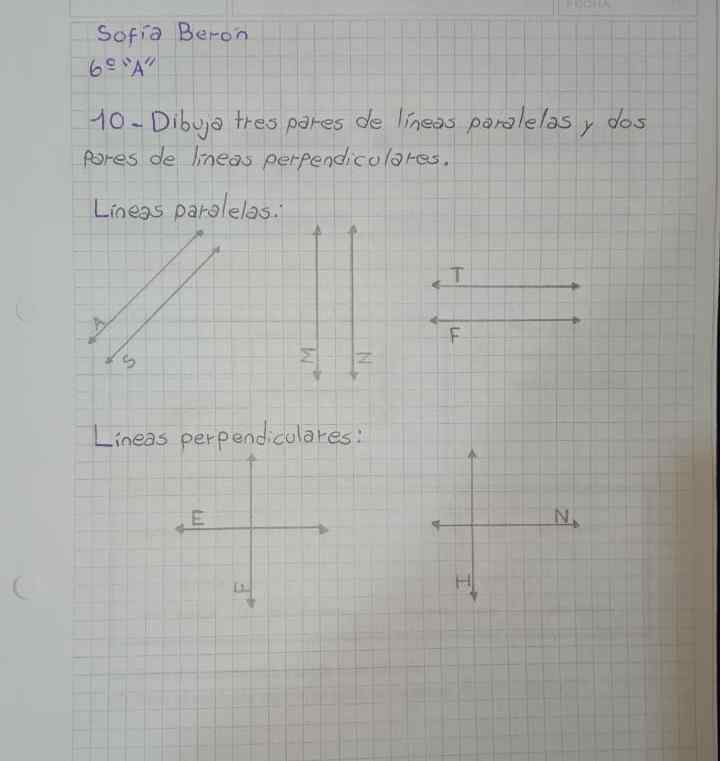 FECHA
Sofía Berón
6º "A"
10-Dibuja tres pares de líneas paralelas y dos
pares de líneas perpendiculares.
Líneas paralelas:
A
S
M
N
T
F
Líneas perpendiculares:
E
F
N
H